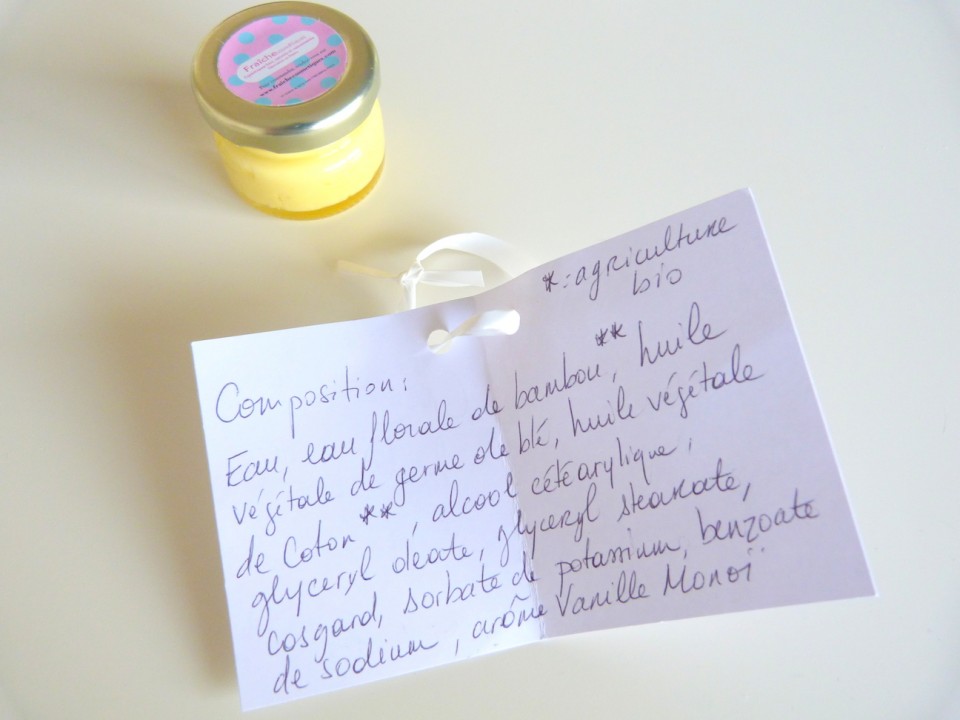 Fraîche
www.fraichecosmetiques.com
*: agriculture
bio
Composition:
Eau, eau florale de bambou**, huile
végétale de germe de blé, huile végétale
de Coton**, alcool cétéarylique,
glyceryl oléate, glyceryl stearate,
cosgard, sorbate de potassium, benzoate
de sodium, arôme Vanille Monoï